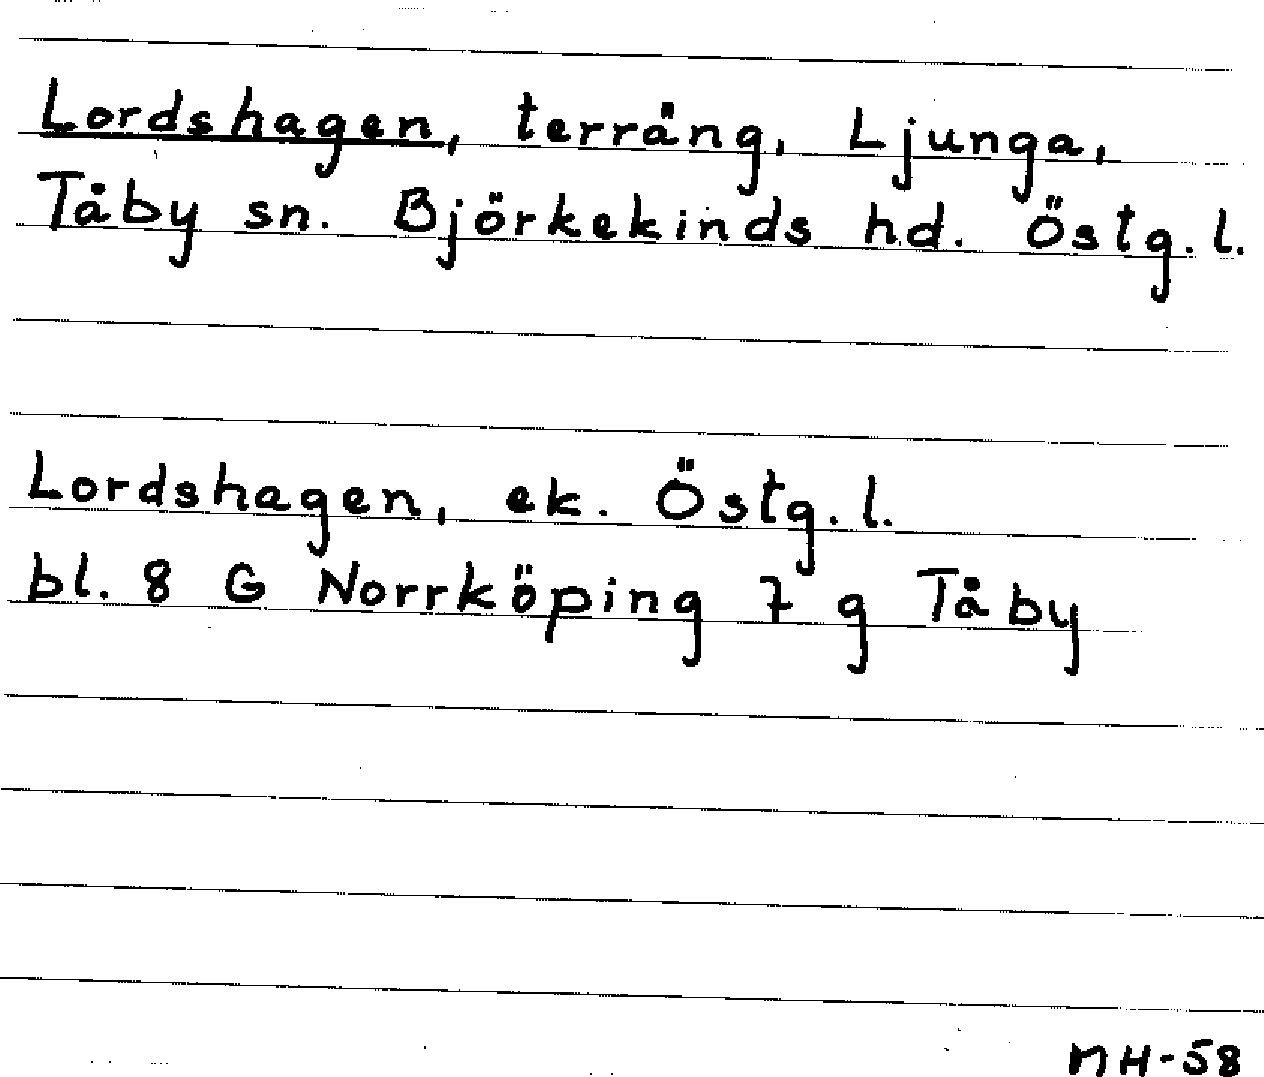 Lordshagen, terräng, Ljunga,
Tåby sn. Björkekinds hd. Östg. l.
Lordshagen, ek. Östg. l.
bl. 8 G Norrköping 7 g Tåby
MH-58